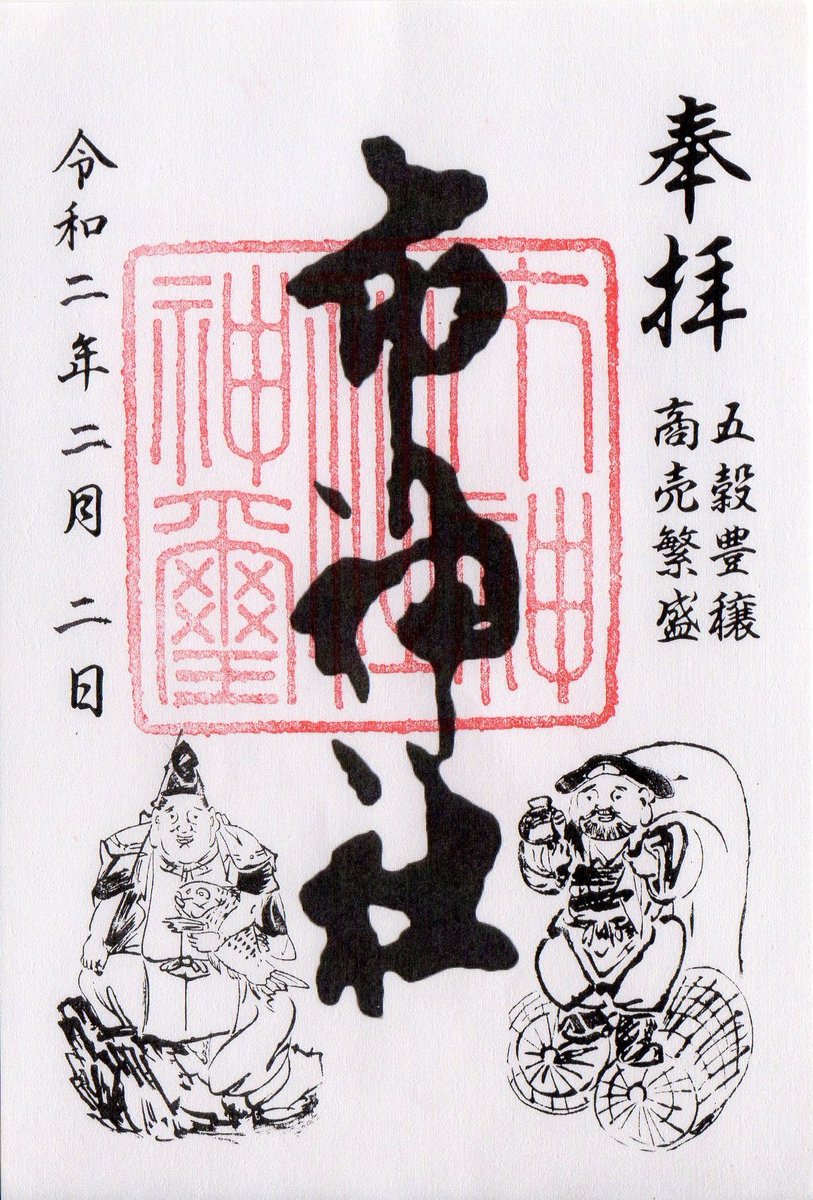 奉拝
五穀豊穣
商売繁盛
市神社
市神
社
神璽
令和二年二月二日